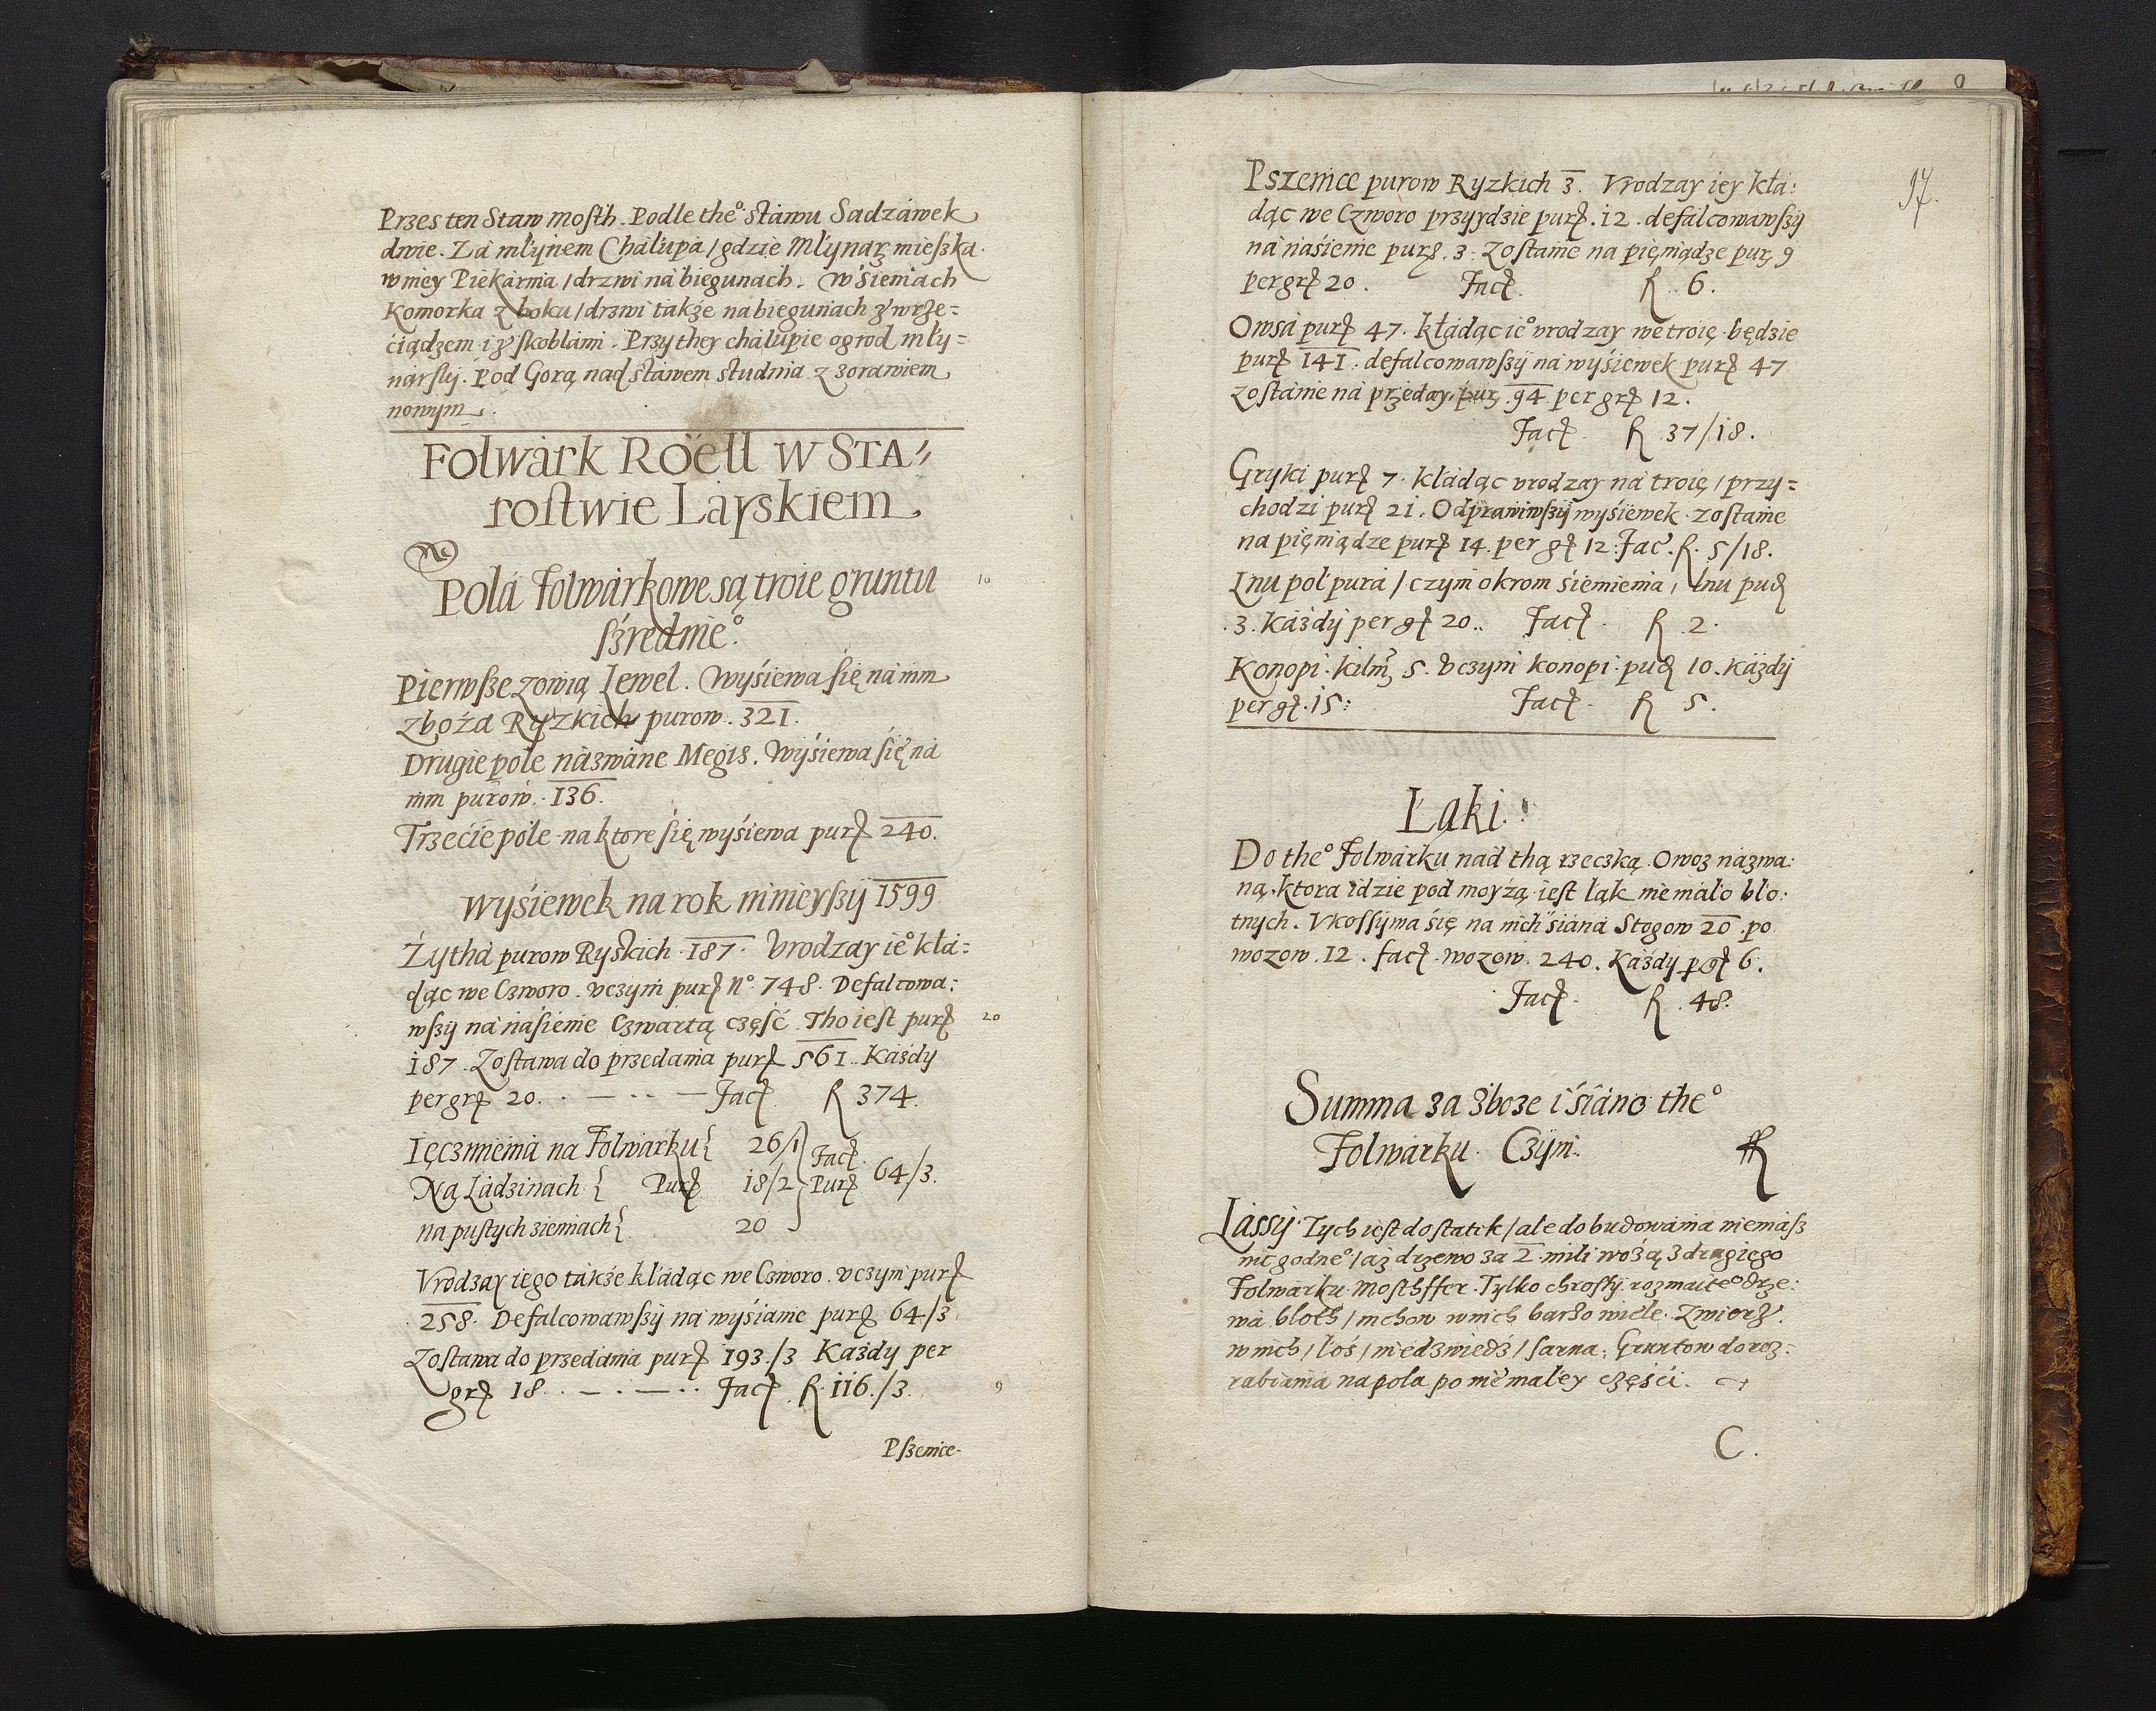 Przes ten Staw mosth. Podle the° stawu Sadzawek
dwie. Za młynem Chałupa / gdzie Młynarz mieszka.
w niey Piekarnia / drzwi na biegunach. W sieniach
Komorka z boku / drzwi takze na biegunach z wrze=
ciądzem i z skoblami. Przy they chałupie ogrod mły=
narsky. Pod Gorą nad stawem studnia z zorawiem
nowym.
Folwark Röell w Sta=
rostwie Layskiem
Pola Folwarkowe są troie gruntu
szrednie°.
Pierwsze zowią Lewel. Wysiewa się na nim
zboża Ryzkich purow. 321.
Drugie pole nazwane Megis. Wysiewa się na
nim purow. 136.
Trzecie pole na ktore się wysiewa purz 240.
Wysiewek na rok ninieyszy 1599
Żytha purow Ryskich 187. Vrodzay ie° kła=
dąc we Czworo. vczyni purz N° 748. Defalcowa:
wszy na nasienie Czwartą część. Tho iest purz
187. Zostawa do przedania purz 561. Każdy
per grz 20. Facz R 374.
Ięczmienia na Folwarku { 26/1 } Facz
Na Ladzinach { Purz 18/2 } Purz 64/3.
na pustych ziemiach { 20 }
Vrodzay iego także kładąc we Czworo. vczyni purz
258. Defalcowawszy na wysianie purz 64/3
Zostawa do przedania purz 193./3 Każdy per
grz 18. Facz R 116./3.
Pszenice.
10
20
9
97.
Pszenice purow Ryzkich 3. Vrodzay iey kła:
dąc we Czworo przyydzie purz. 12. defalcowawszy
na nasienie purz. 3. Zostanie na pieniądze purz 9
per grz 20. Facz R. 6.
Owsa purz 47. kładąc ie° vrodzay we troię będzie
purz 141. defalcowawszy na wysiewek purz 47
zostanie na przeday. purz 94. per grz 12.
Facz. R. 37/18.
Gryki purz 7. kładąc vrodzay na troię / przy=
chodzi purz 21. Odprawiwszy wysiewek zostanie
na pieniądze purz 14. per gz 12. Fac. R. 5/18.
Lnu poł pura / czyni okrom siemienia, lnu pud
3. Każdy per gz 20. Facz R 2.
Konopi kilm 5. vczyni konopi pud 10. każdy
per gz. 15: Facz. R 5.
Łąki.
Do the° Folwarku nad thą rzeczką Owoz nazwa:
ną, ktora idzie pod moyzą iest łąk niemało bło:
tnych. Vkossywa się na nich siana Stogow 20. po
wozow. 12. facz. wozow. 240. Każdy p gz 6.
Facz. R. 48.
Summa za zboze i siano the°
Folwarku. Czyni. fR
Lassy. Tych iest dostatek / ale do budowania niemasz
nic godne° / aż drzewo za 2 mili wożą z drugiego
Folwarku Mosthffer. Tylko chrosty rozmaite° drze:
wa błoth / mchow w nich barzo wiele. Zwierz
w nich / łoś / niedzwiedz / sarna. Gruntow do roz:
rabiania na pola po niemałey części.
C.